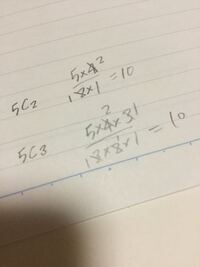 5C2 5×4 2 / 1 2×1 =10
5C3 5×4 2×3 1 / 1 3×2 1×1 = 10